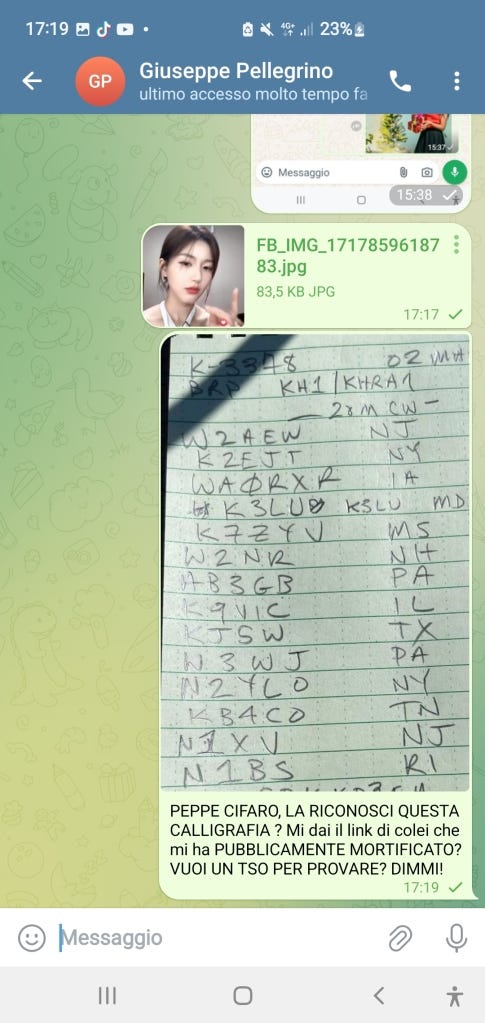 17:19
4G+
23%
GP
Giuseppe Pellegrino
ultimo accesso molto tempo fa
15:37
Messaggio
15:38
FB_IMG_17178596187
83.jpg
83,5 KB JPG
17:17
K-3378 02 MAH
BRP KH1/KHRA1
— 20m CW -
W2AEW NJ
K2EJT NY
WAØRXR IA
K3LU K3LU MD
K7ZYV MS
W2NR NH
AB3GB PA
K9VIC IL
KJ5W TX
N3WJ PA
N2YLO NY
KB4CO TN
N1XV NJ
N1BS RI
PEPPE CIFARO, LA RICONOSCI QUESTA
CALLIGRAFIA ? Mi dai il link di colei che
mi ha PUBBLICAMENTE MORTIFICATO?
VUOI UN TSO PER PROVARE? DIMMI!
17:19
Messaggio